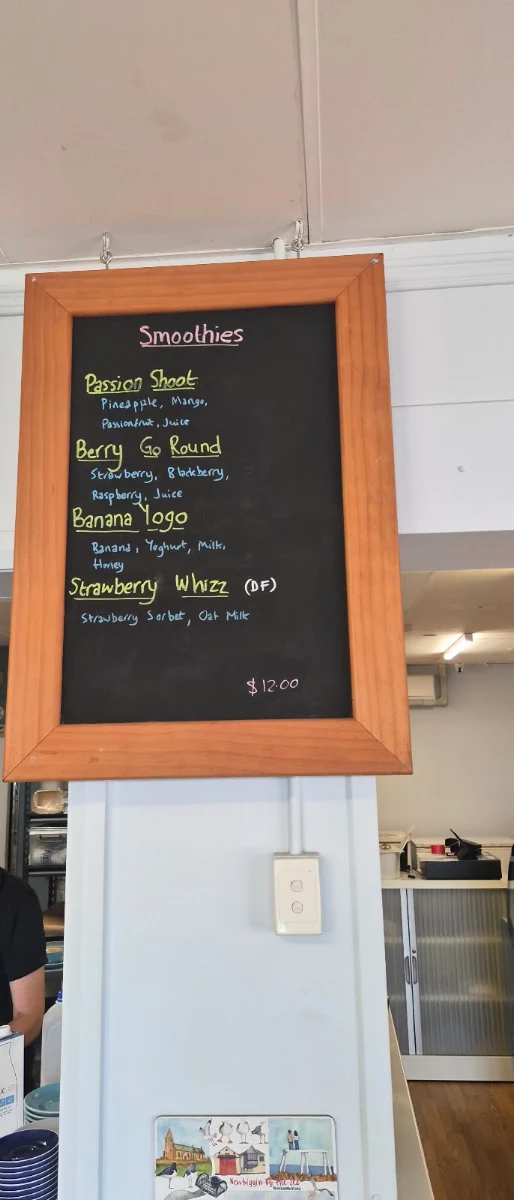 Smoothies
Passion Shoot
Pineapple, Mango,
Passionfruit, Juice
Berry Go Round
Strawberry, Blackberry,
Raspberry, Juice
Banana Yogo
Banana, Yoghurt, Milk,
Honey
Strawberry Whizz (DF)
Strawberry Sorbet, Oat Milk
$12.00
Newbiggin-by-the-Sea